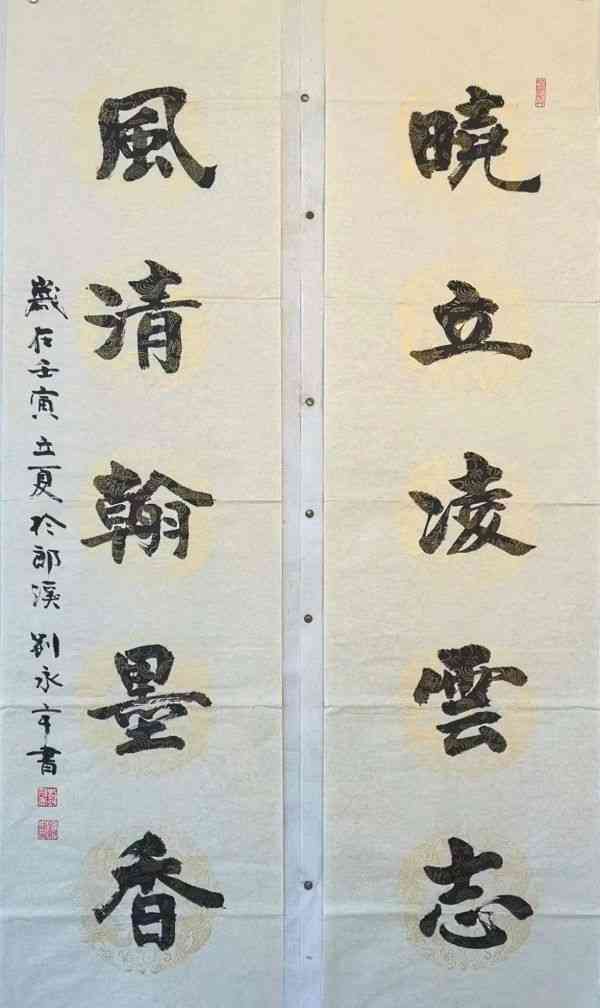 曉立凌雲志
風清翰墨香
歲在壬寅立夏於郎溪劉永平書